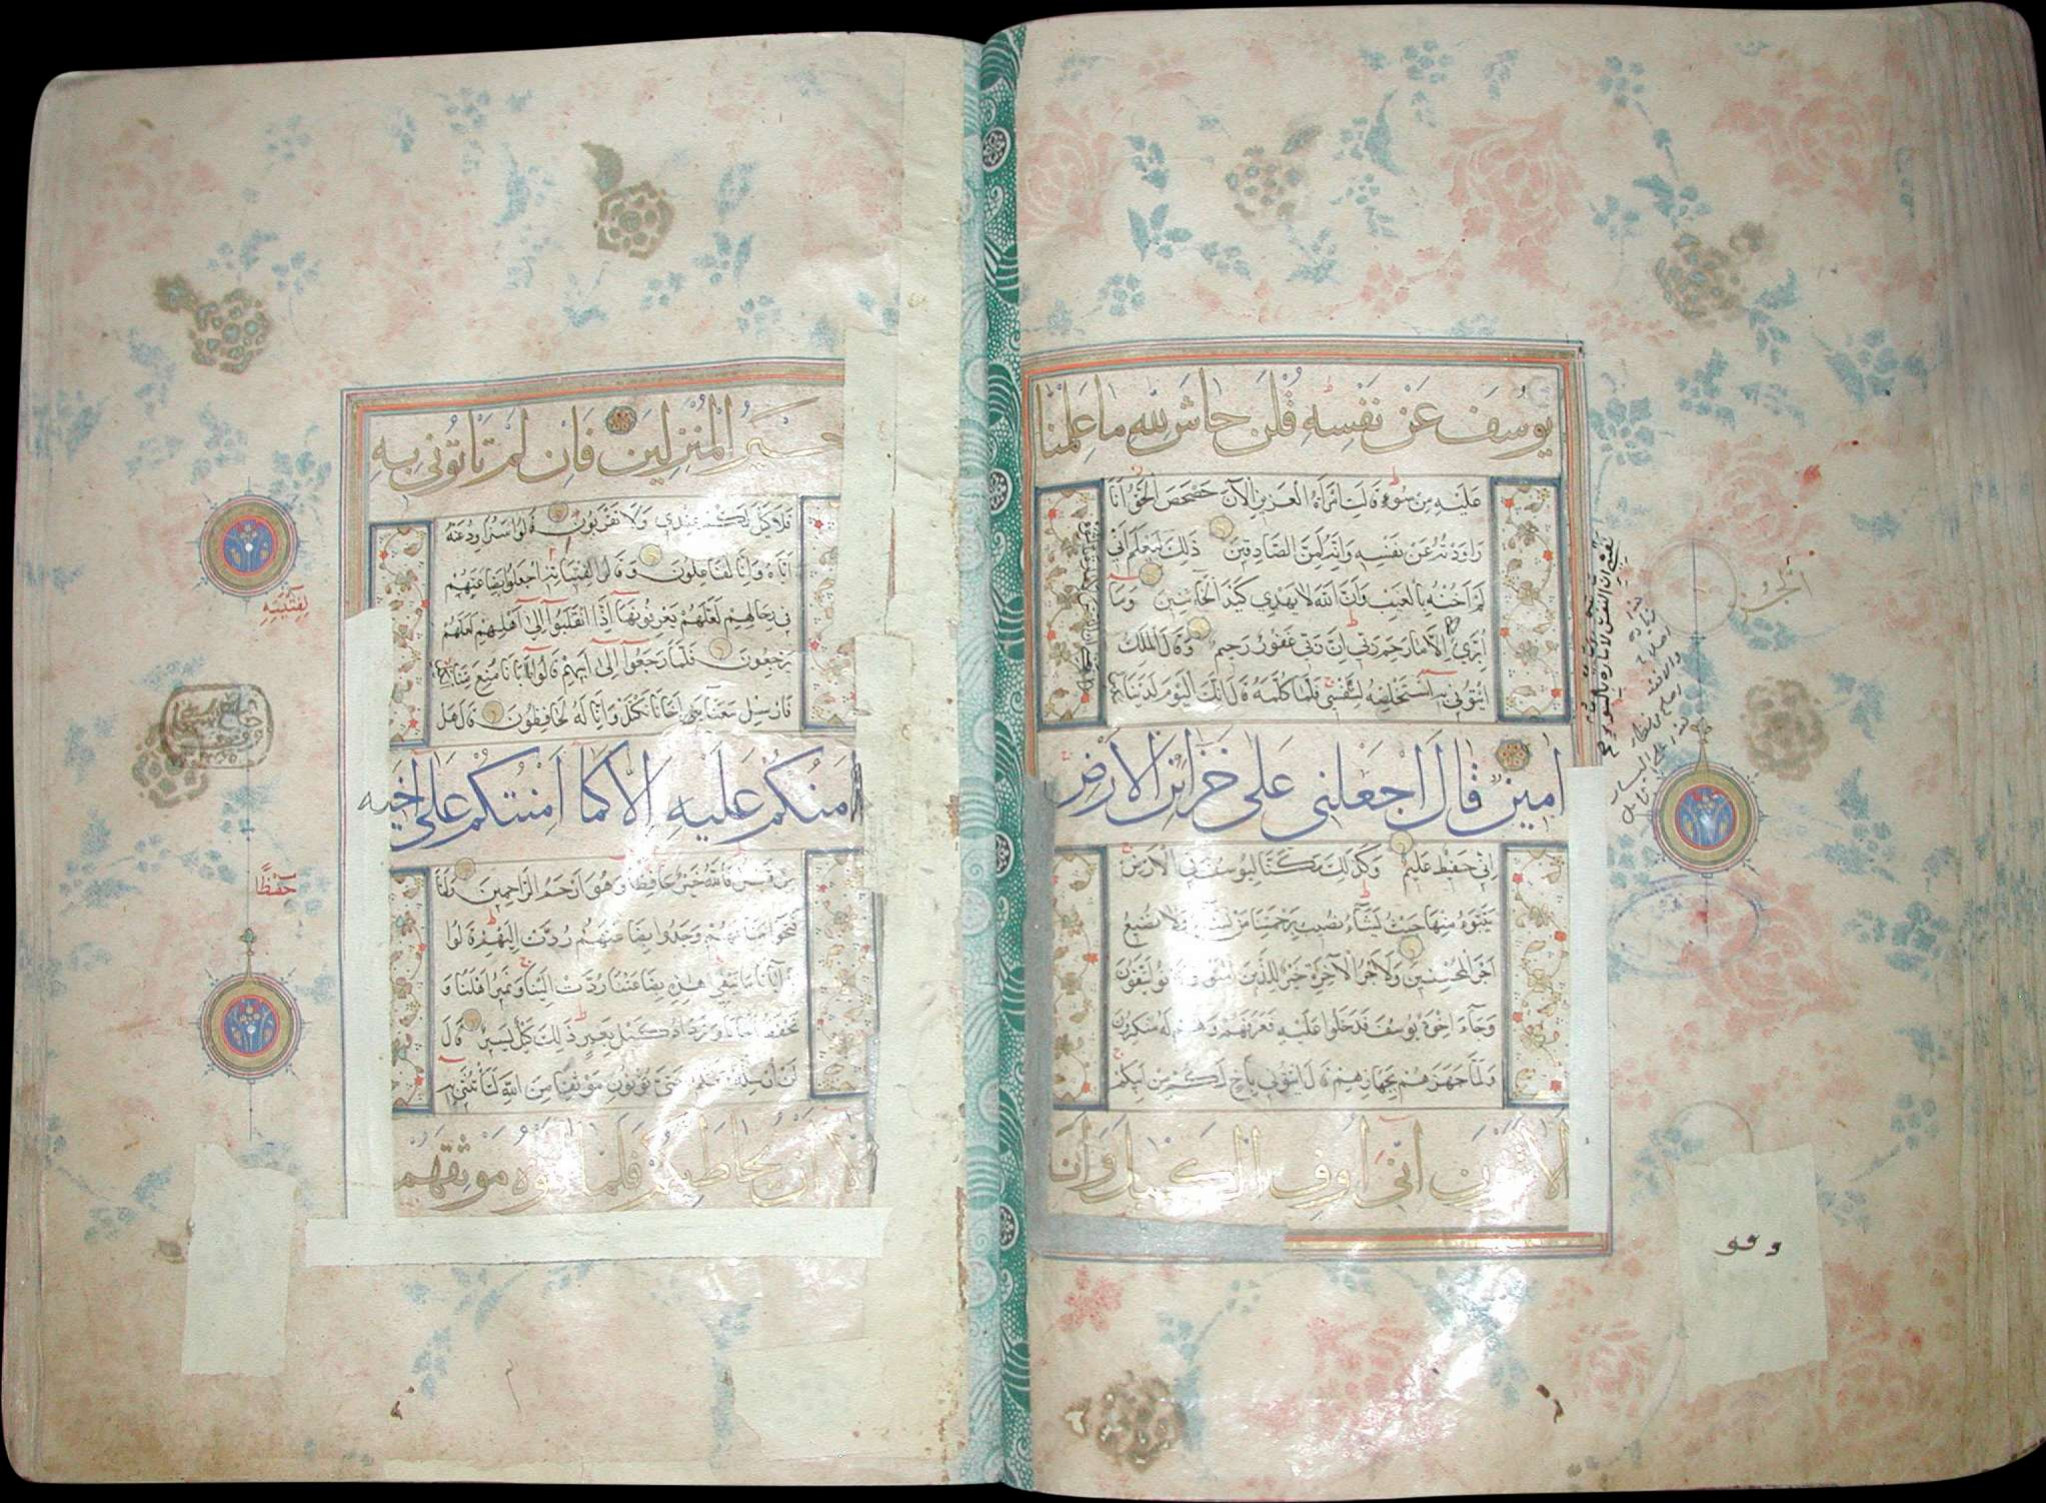 يُوسُفَ عَنْ نَفْسِهِ قُلْنَ حَاشَ لِلّٰهِ مَا عَلِمْنَا
عَلَيْهِ مِنْ سُوءٍ قَالَتِ امْرَأَةُ الْعَزِيزِ الْآنَ حَصْحَصَ الْحَقُّ أَنَا
رَاوَدْتُهُ عَنْ نَفْسِهِ وَإِنَّهُ لَمِنَ الصَّادِقِينَ ذَلِكَ لِيَعْلَمَ أَنِّي
لَمْ أَخُنْهُ بِالْغَيْبِ وَأَنَّ اللهَ لَا يَهْدِي كَيْدَ الْخَائِنِينَ وَمَا
أُبَرِّئُ إِلَّا مَا رَحِمَ رَبِّي إِنَّ رَبِّي غَفُورٌ رَحِيمٌ وَقَالَ الْمَلِكُ
ائْتُونِي بِهِ أَسْتَخْلِصْهُ لِنَفْسِي فَلَمَّا كَلَّمَهُ قَالَ إِنَّكَ الْيَوْمَ لَدَيْنَا مَكِينٌ
أَمِينٌ قَالَ اجْعَلْنِي عَلَى خَزَائِنِ الْأَرْضِ
إِنِّي حَفِيظٌ عَلِيمٌ وَكَذَلِكَ مَكَّنَّا لِيُوسُفَ فِي الْأَرْضِ
يَتَبَوَّءُ مِنْهَا حَيْثُ يَشَاءُ نُصِيبُ بِرَحْمَتِنَا مَنْ نَشَاءُ وَلَا نُضِيعُ
أَجْرَ الْمُحْسِنِينَ وَلَأَجْرُ الْآخِرَةِ خَيْرٌ لِلَّذِينَ آمَنُوا وَكَانُوا يَتَّقُونَ
وَجَاءَ إِخْوَةُ يُوسُفَ فَدَخَلُوا عَلَيْهِ فَعَرَفَهُمْ وَهُمْ لَهُ مُنْكِرُونَ
وَلَمَّا جَهَّزَهُمْ بِجَهَازِهِمْ قَالَ ائْتُونِي بِأَخٍ لَكُمْ مِنْ أَبِيكُمْ
أَلَا تَرَوْنَ أَنِّي أُوفِي الْكَيْلَ وَأَنَا
نَفْسِي إِنَّ النَّفْسَ لَأَمَّارَةٌ بِالسُّوءِ
الجزء
وقو
خَيْرُ الْمُنْزِلِينَ فَإِنْ لَمْ تَأْتُونِي بِهِ
فَلَا كَيْلَ لَكُمْ عِنْدِي وَلَا تَقْرَبُونِ قَالُوا سَنُرَاوِدُ عَنْهُ
أَبَاهُ وَإِنَّا لَفَاعِلُونَ وَقَالَ لِفِتْيَانِهِ اجْعَلُوا بِضَاعَتَهُمْ
فِي رِحَالِهِمْ لَعَلَّهُمْ يَعْرِفُونَهَا إِذَا انْقَلَبُوا إِلَى أَهْلِهِمْ لَعَلَّهُمْ
يَرْجِعُونَ فَلَمَّا رَجَعُوا إِلَى أَبِيهِمْ قَالُوا يَا أَبَانَا مُنِعَ مِنَّا
فَأَرْسِلْ مَعَنَا أَخَانَا نَكْتَلْ وَإِنَّا لَهُ لَحَافِظُونَ قَالَ هَلْ
آمَنُكُمْ عَلَيْهِ إِلَّا كَمَا أَمِنْتُكُمْ عَلَى أَخِيهِ
مِنْ قَبْلُ فَاللهُ خَيْرٌ حَافِظًا وَهُوَ أَرْحَمُ الرَّاحِمِينَ وَلَمَّا
فَتَحُوا مَتَاعَهُمْ وَجَدُوا بِضَاعَتَهُمْ رُدَّتْ إِلَيْهِمْ قَالُوا
يَا أَبَانَا مَا نَبْغِي هَذِهِ بِضَاعَتُنَا رُدَّتْ إِلَيْنَا وَنَمِيرُ أَهْلَنَا وَ
نَحْفَظُ أَخَانَا وَنَزْدَادُ كَيْلَ بَعِيرٍ ذَلِكَ كَيْلٌ يَسِيرٌ قَالَ
لَنْ أُرْسِلَهُ مَعَكُمْ حَتَّى تُؤْتُونِ مَوْثِقًا مِنَ اللهِ لَتَأْتُنَّنِي بِهِ
إِلَّا أَنْ يُحَاطَ بِكُمْ فَلَمَّا آتَوْهُ مَوْثِقَهُمْ
لِفِتْيَتِهِ
حِفْظًا